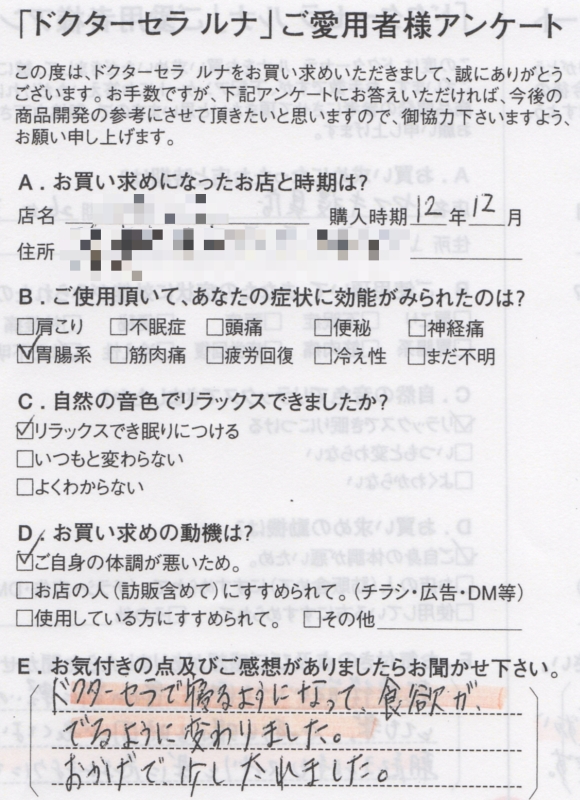 「ドクターセラ ルナ」ご愛用者様アンケート
この度は、ドクターセラ ルナをお買い求めいただきまして、誠にありがとう
ございます。お手数ですが、下記アンケートにお答えいただければ、今後の
商品開発の参考にさせて頂きたいと思いますので、御協力下さいますよう、
お願い申し上げます。
A．お買い求めになったお店と時期は?
店名 購入時期 12年 12月
住所
B．ご使用頂いて、あなたの症状に効能がみられたのは?
□肩こり □不眠症 □頭痛 □便秘 □神経痛
☑胃腸系 □筋肉痛 □疲労回復 □冷え性 □まだ不明
C．自然の音色でリラックスできましたか?
☑リラックスでき眠りにつける
□いつもと変わらない
□よくわからない
D．お買い求めの動機は?
☑ご自身の体調が悪いため。
□お店の人(訪販含めて)にすすめられて。(チラシ・広告・DM等)
□使用している方にすすめられて。 □その他
E．お気付きの点及びご感想がありましたらお聞かせ下さい。
ドクターセラで寝るようになって、食欲が
でるように変わりました。
おかげで